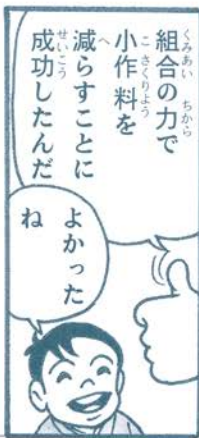 組合の力で
小作料を
減らすことに
成功したんだ
よかった
ね